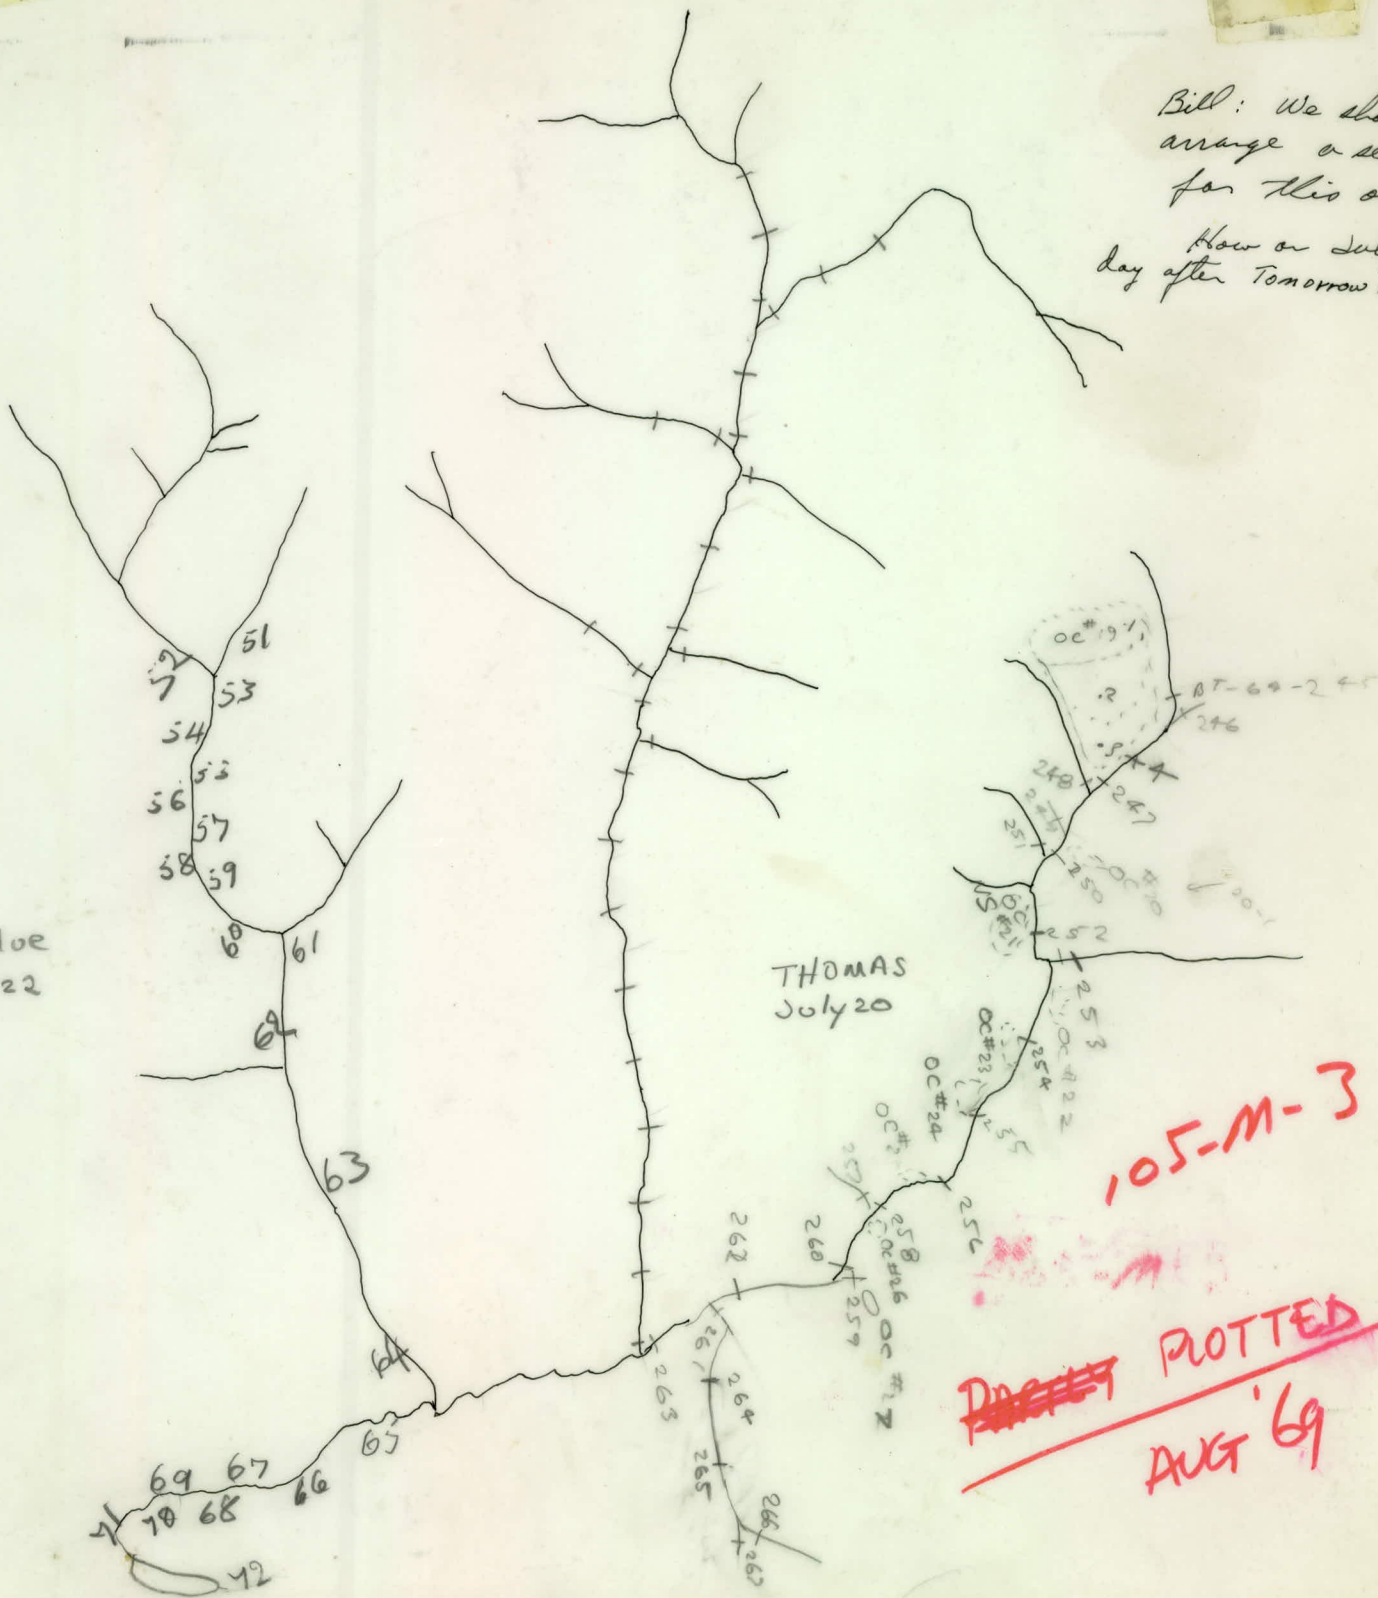 Bill: We
arrange a
for this
How on
day after Tomorrow
51
53
54
55
56
57
58
59
60
61
62
63
64
65
66
67
68
69
70
71
72
22
THOMAS
July 20
OC#19
.2
BT-69-245
246
247
248
250
251
OC
20-1
OC
#21
252
253
OC#22
OC#23
254
OC#24
255
256
258
OC#26
259
OC #27
260
262
261
263
264
265
266
267
105-M-3
PLOTTED
AUG '69